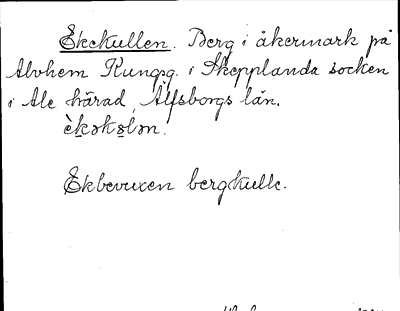 Ekekullen. Berg i åkermark på
Alvhem Kungsg. i Skepplanda socken
i Ale härad, Älfsborgs län.
Ekbevuxen bergkulle.